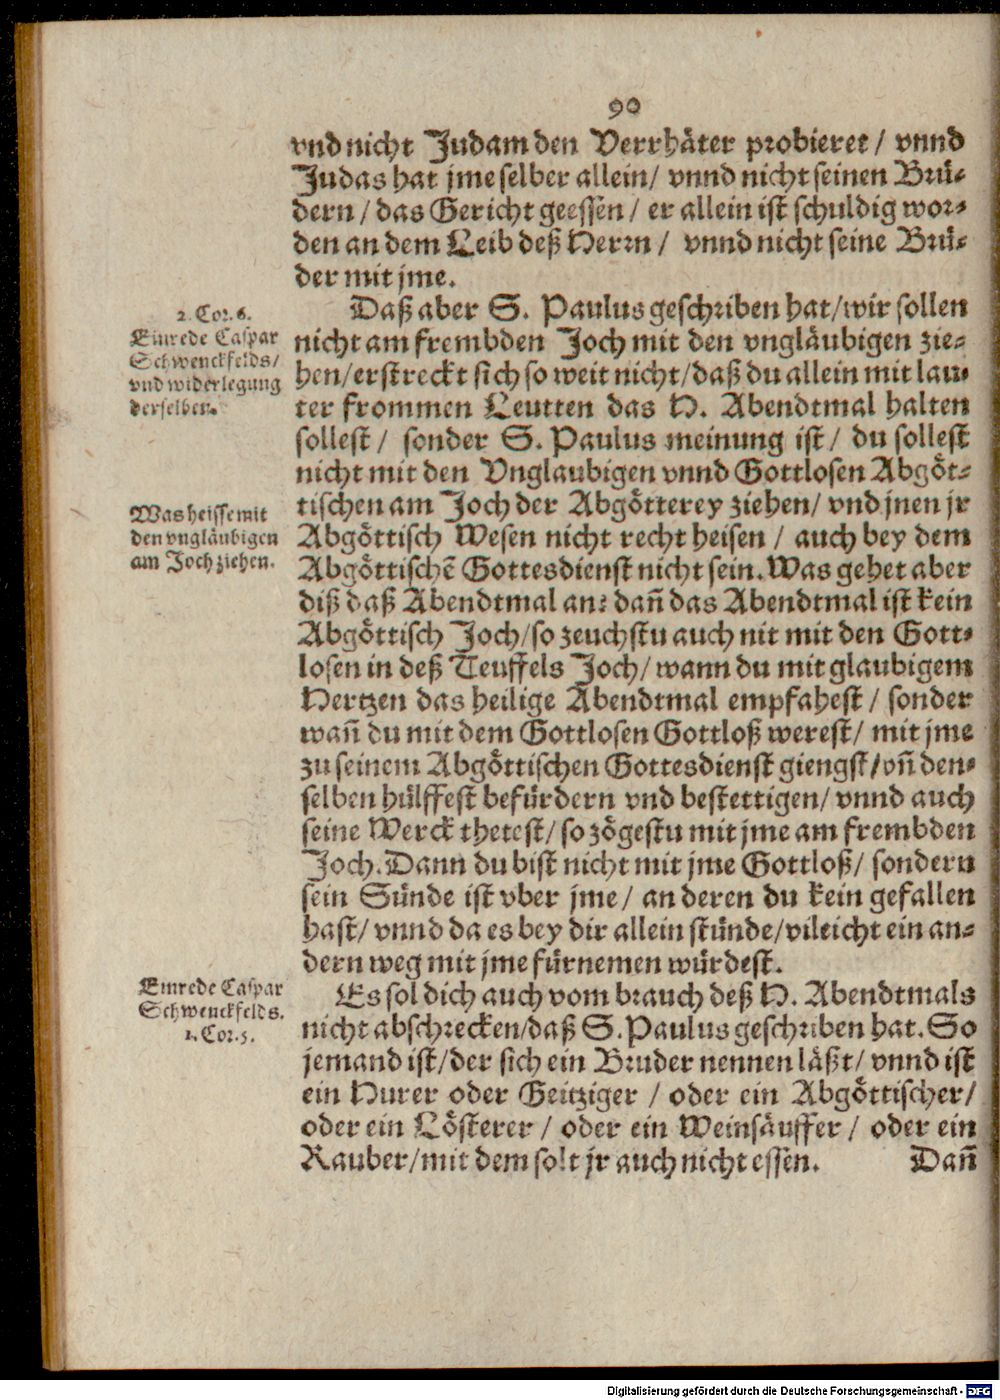 90
vnd nicht Judam den Verrhäter probieret / vnnd
Judas hat jme selber allein / vnnd nicht seinen Brü-
dern / das Gericht geessen / er allein ist schuldig wor-
den an dem Leib deß Herrn / vnnd nicht seine Brü-
der mit jme.
2. Cor. 6.
Einrede Caspar
Schwenckfelds /
vnd widerlegung
derselben.
Daß aber S. Paulus geschriben hat / wir sollen
nicht am frembden Joch mit den vngläubigen zie-
hen / erstreckt sich so weit nicht / daß du allein mit lau-
ter frommen Leutten das H. Abendtmal halten
sollest / sonder S. Paulus meinung ist / du sollest
nicht mit den Vnglaubigen vnnd Gottlosen Abgöt-
Was heisse mit
den vngläubigen
am Joch ziehen.
tischen am Joch der Abgötterey ziehen / vnd jnen jr
Abgöttisch Wesen nicht recht heisen / auch bey dem
Abgöttischē Gottesdienst nicht sein. Was gehet aber
diß daß Abendtmal an? dañ das Abendtmal ist kein
Abgöttisch Joch / so zeuchstu auch nit mit den Gott-
losen in deß Teuffels Joch / wann du mit glaubigem
Hertzen das heilige Abendtmal empfahest / sonder
wañ du mit dem Gottlosen Gottloß werest / mit jme
zu seinem Abgöttischen Gottesdienst giengst / vñ den-
selben hülffest befürdern vnd bestettigen / vnnd auch
seine Werck thetest / so zögestu mit jme am frembden
Joch. Dann du bist nicht mit jme Gottloß / sondern
sein Sünde ist vber jme / an deren du kein gefallen
hast / vnnd da es bey dir allein stünde / vileicht ein an-
dern weg mit jme fürnemen würdest.
Einrede Caspar
Schwenckfelds.
1. Cor. 5.
Es sol dich auch vom brauch deß H. Abendtmals
nicht abschrecken / daß S. Paulus geschriben hat. So
jemand ist / der sich ein Bruder nennen läßt / vnnd ist
ein Hurer oder Geitziger / oder ein Abgöttischer /
oder ein Lösterer / oder ein Weinsäuffer / oder ein
Rauber / mit dem solt jr auch nicht essen. Dañ
Digitalisierung gefördert durch die Deutsche Forschungsgemeinschaft - DFG